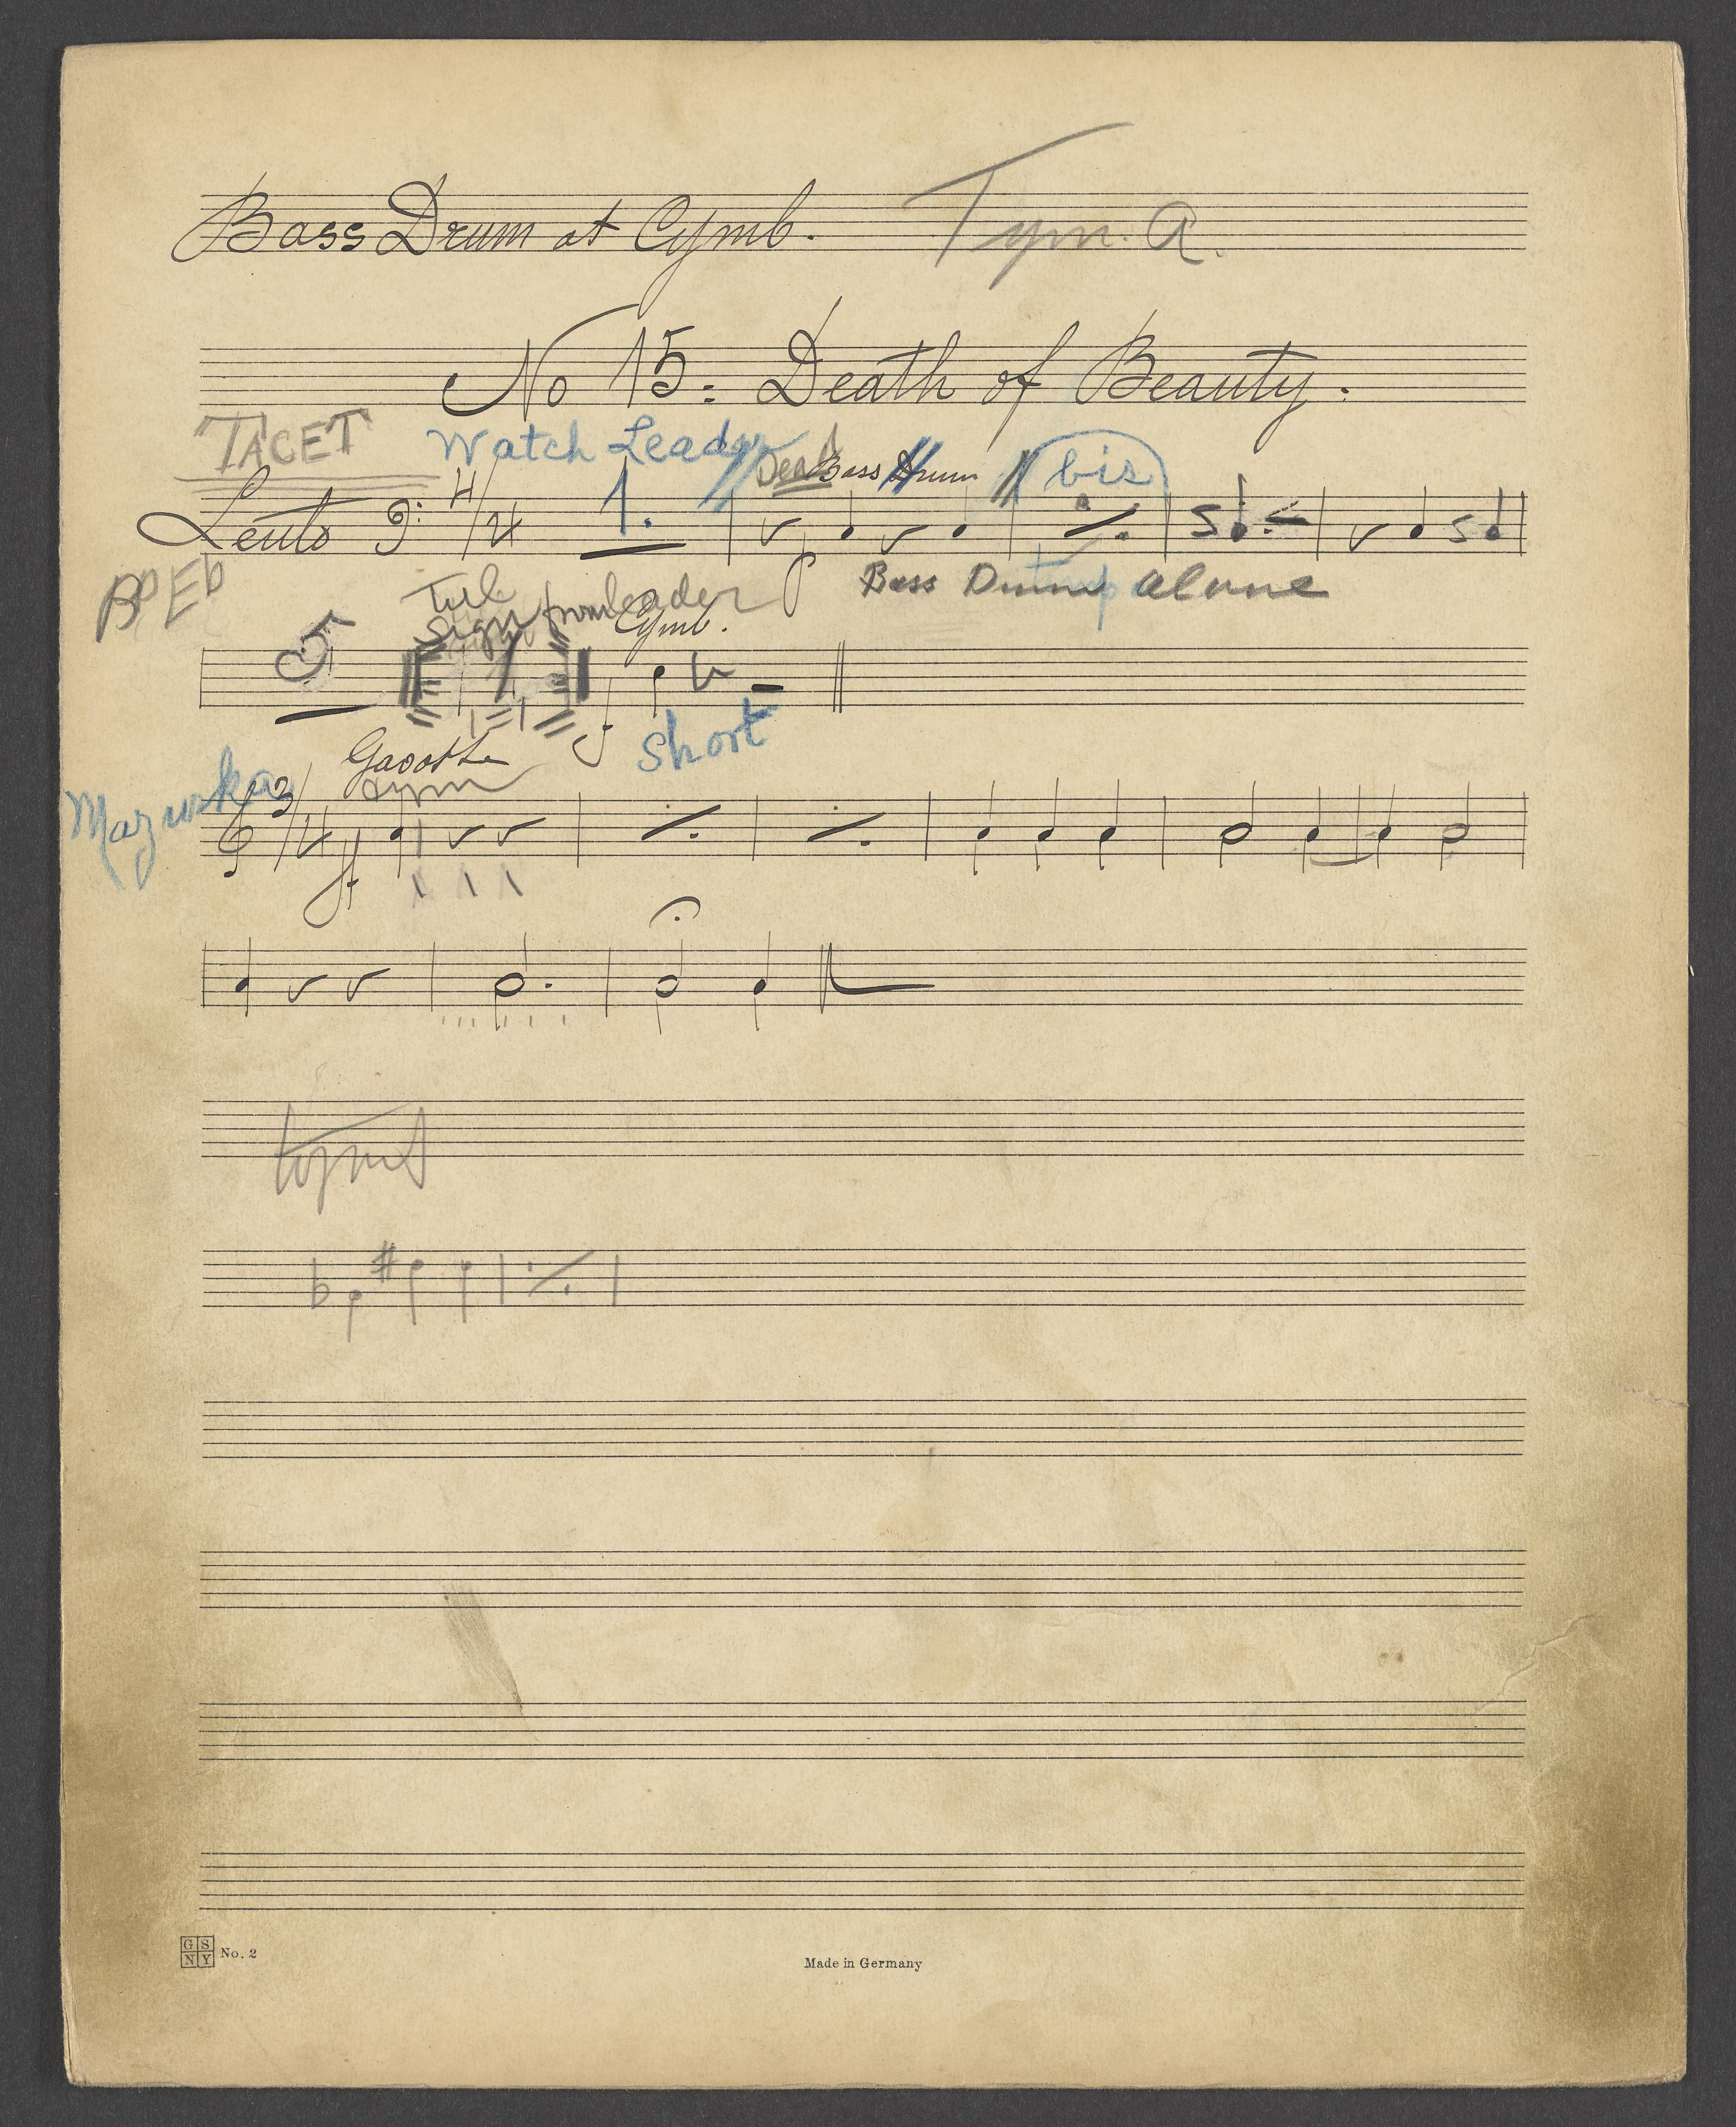 Bass Drum et Cymb. Tym. A.
No 15: Death of Beauty.
TACET Watch Leader
Dead Bass Drum bis
Lento 4/4 1.
Bass Drum alone
Till
Sign from leader
Cymb.
5 1
short
Mazurka
Gavotte
3/4
G S
N Y No. 2
Made in Germany